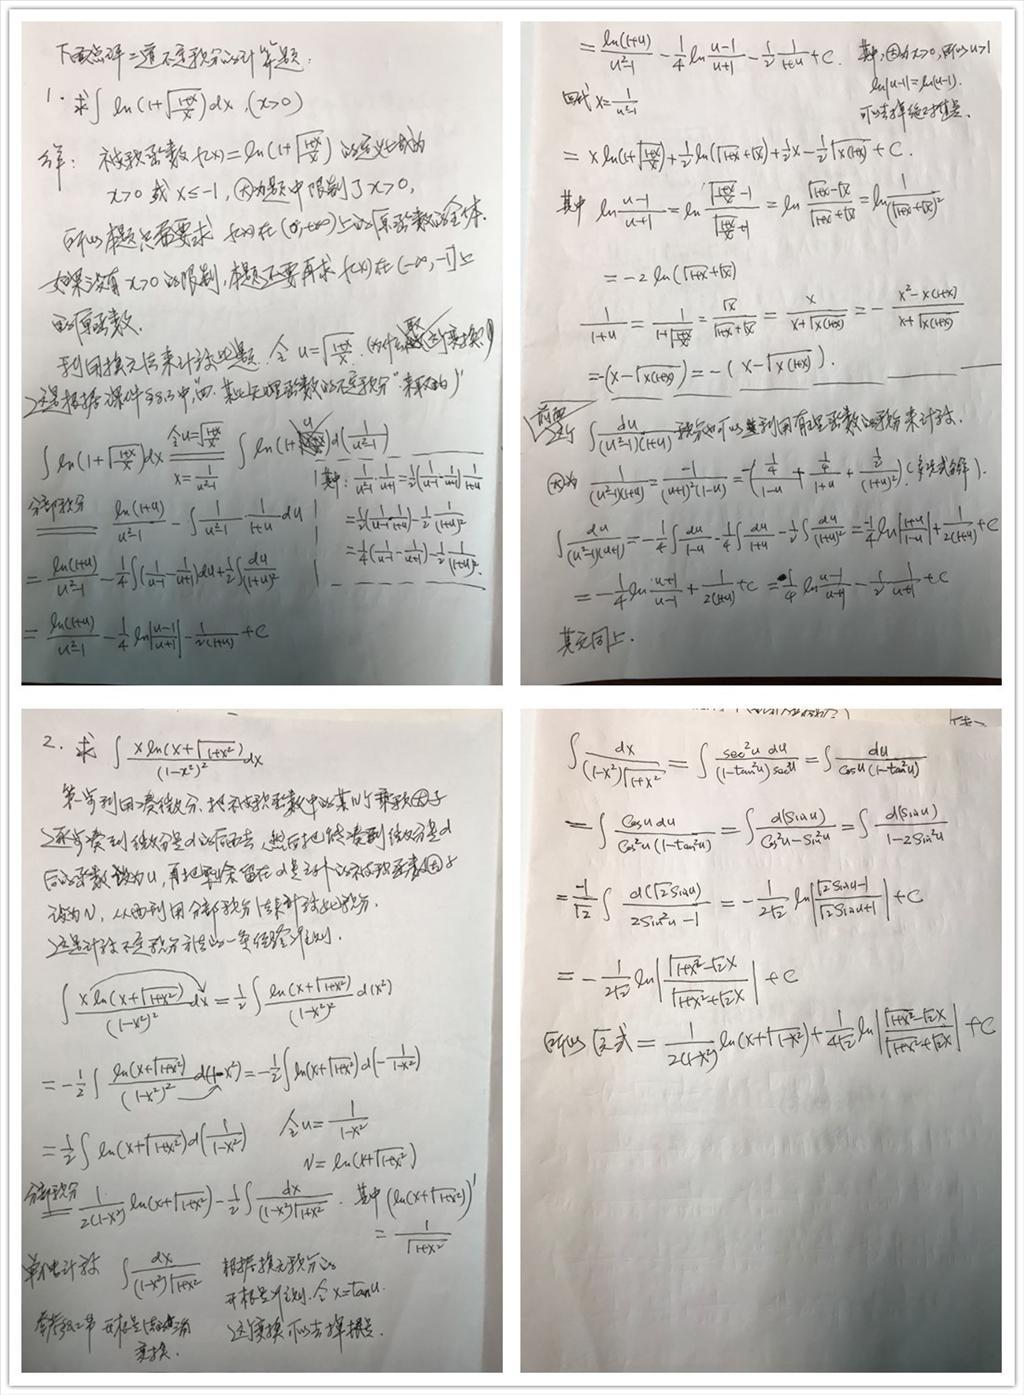 下面点评二道不定积分的计算题.
1. 求∫ ln(1+√((1+x)/x))dx, (x>0)
解: 被积函数 f(x)=ln(1+√((1+x)/x)) 的定义域为
x>0 或 x≤-1, 因为题中限制了 x>0,
所以本题只需要求 f(x)在(0,+∞)上的原函数的全体.
如果没有 x>0 的限制, 本题还要再求 f(x)在(-∞,-1]上
的原函数.
利用换元法来计算此题. 令 u=√((1+x)/x). (为什么 这变换?)
这是根据课件§8.3中,"四. 某些无理函数的不定积分"来取的
∫ ln(1+√((1+x)/x))dx 令u=√((1+x)/x) x=1/(u²-1) ∫ ln(1+u) d(1/(u²-1))
分部积分 ln(1+u)/(u²-1) - ∫ 1/(u²-1) · 1/(1+u) du
= ln(1+u)/(u²-1) - 1/4∫(1/(u-1) - 1/(u+1))du + 1/2∫du/(1+u)²
= ln(1+u)/(u²-1) - 1/4 ln|(u-1)/(u+1)| - 1/(2(1+u)) + C
其中: 1/(u²-1) · 1/(u+1) = 1/2(1/(u-1) - 1/(u+1)) 1/(1+u)
= 1/2(1/(u-1) · 1/(1+u)) - 1/2 1/(1+u)²
= 1/4(1/(u-1) - 1/(u+1)) - 1/2 1/(1+u)².
= ln(1+u)/(u²-1) - 1/4 ln (u-1)/(u+1) - 1/2 1/(1+u) + C. 其中,因为x>0,所以u>1
ln|u-1|=ln(u-1).
可以去掉绝对值是.
回代 x=1/(u²-1)
= x ln(1+√((1+x)/x)) + 1/2 ln(√(1+x)+√x) + 1/2 x - 1/2 √(x(1+x)) + C.
其中 ln (u-1)/(u+1) = ln (√((1+x)/x)-1)/(√((1+x)/x)+1) = ln (√(1+x)-√x)/(√(1+x)+√x) = ln 1/(√(1+x)+√x)²
= -2 ln(√(1+x)+√x)
1/(1+u) = 1/(1+√((1+x)/x)) = √x/(√(1+x)+√x) = x/(x+√(x(1+x))) = - (x²-x(1+x))/(x+√(x(1+x)))
= -(x-√(x(1+x))) = -(x-√(x(1+x))).
前面 ∫ du/((u²-1)(1+u)) 积分也可以 利用有理函数的积分来计算.
因为 1/((u²-1)(1+u)) = -1/((u+1)²(1-u)) = -((1/4)/(1-u) + (1/4)/(1+u) + (1/2)/(1+u)²) (多项式分解).
∫ du/((u²-1)(u+1)) = -1/4∫ du/(1-u) - 1/4∫ du/(1+u) - 1/2∫ du/(1+u)² = -1/4 ln|(1+u)/(1-u)| + 1/(2(1+u)) + C
= -1/4 ln (u+1)/(u-1) + 1/(2(1+u)) + C = 1/4 ln (u-1)/(u+1) - 1/2 1/(u+1) + C
其它同上.
2. 求 ∫ x ln(x+√(1+x²))/(1-x²)² dx
第一步利用凑微分, 把被积函数中的某些乘积因子
逐步凑到微分是d的后面去, 然后把能凑到微分是d
后的函数设为u, 再把剩余留在d是之外的被积函数因子
设为v, 从而利用分部积分法来计算此积分.
这是计算不定积分方法的一条经验准则.
∫ x ln(x+√(1+x²))/(1-x²)² dx = 1/2 ∫ ln(x+√(1+x²))/(1-x²)² d(x²)
= -1/2 ∫ ln(x+√(1+x²))/(1-x²)² d(1-x²) = -1/2∫ ln(x+√(1+x²)) d(-1/(1-x²))
= 1/2∫ ln(x+√(1+x²)) d(1/(1-x²)) 令u=1/(1-x²)
v=ln(x+√(1+x²))
分部积分 1/(2(1-x²)) ln(x+√(1+x²)) - 1/2∫ dx/((1-x²)√(1+x²)). 其中 (ln(x+√(1+x²)))'
= 1/√(1+x²)
单独计算 ∫ dx/((1-x²)√(1+x²)) 根据换元积分的
开根是准则, 令 x=tanu.
这变换可以去掉根是.
变换.
∫ dx/((1-x²)√(1+x²)) = ∫ sec²u du/((1-tan²u)secu) = ∫ du/(cosu(1-tan²u))
= ∫ cosu du/(cos²u(1-tan²u)) = ∫ d(sinu)/(cos²u-sin²u) = ∫ d(sinu)/(1-2sin²u)
= -1/√2 ∫ d(√2sinu)/(2sin²u-1) = -1/(2√2) ln|(√2sinu-1)/(√2sinu+1)| + C
= -1/(2√2) ln|(√(1+x²)-√2x)/(√(1+x²)+√2x)| + C
所以 原式 = 1/(2(1-x²)) ln(x+√(1-x²)) + 1/(4√2) ln|(√(1+x²)-√2x)/(√(1+x²)+√2x)| + C